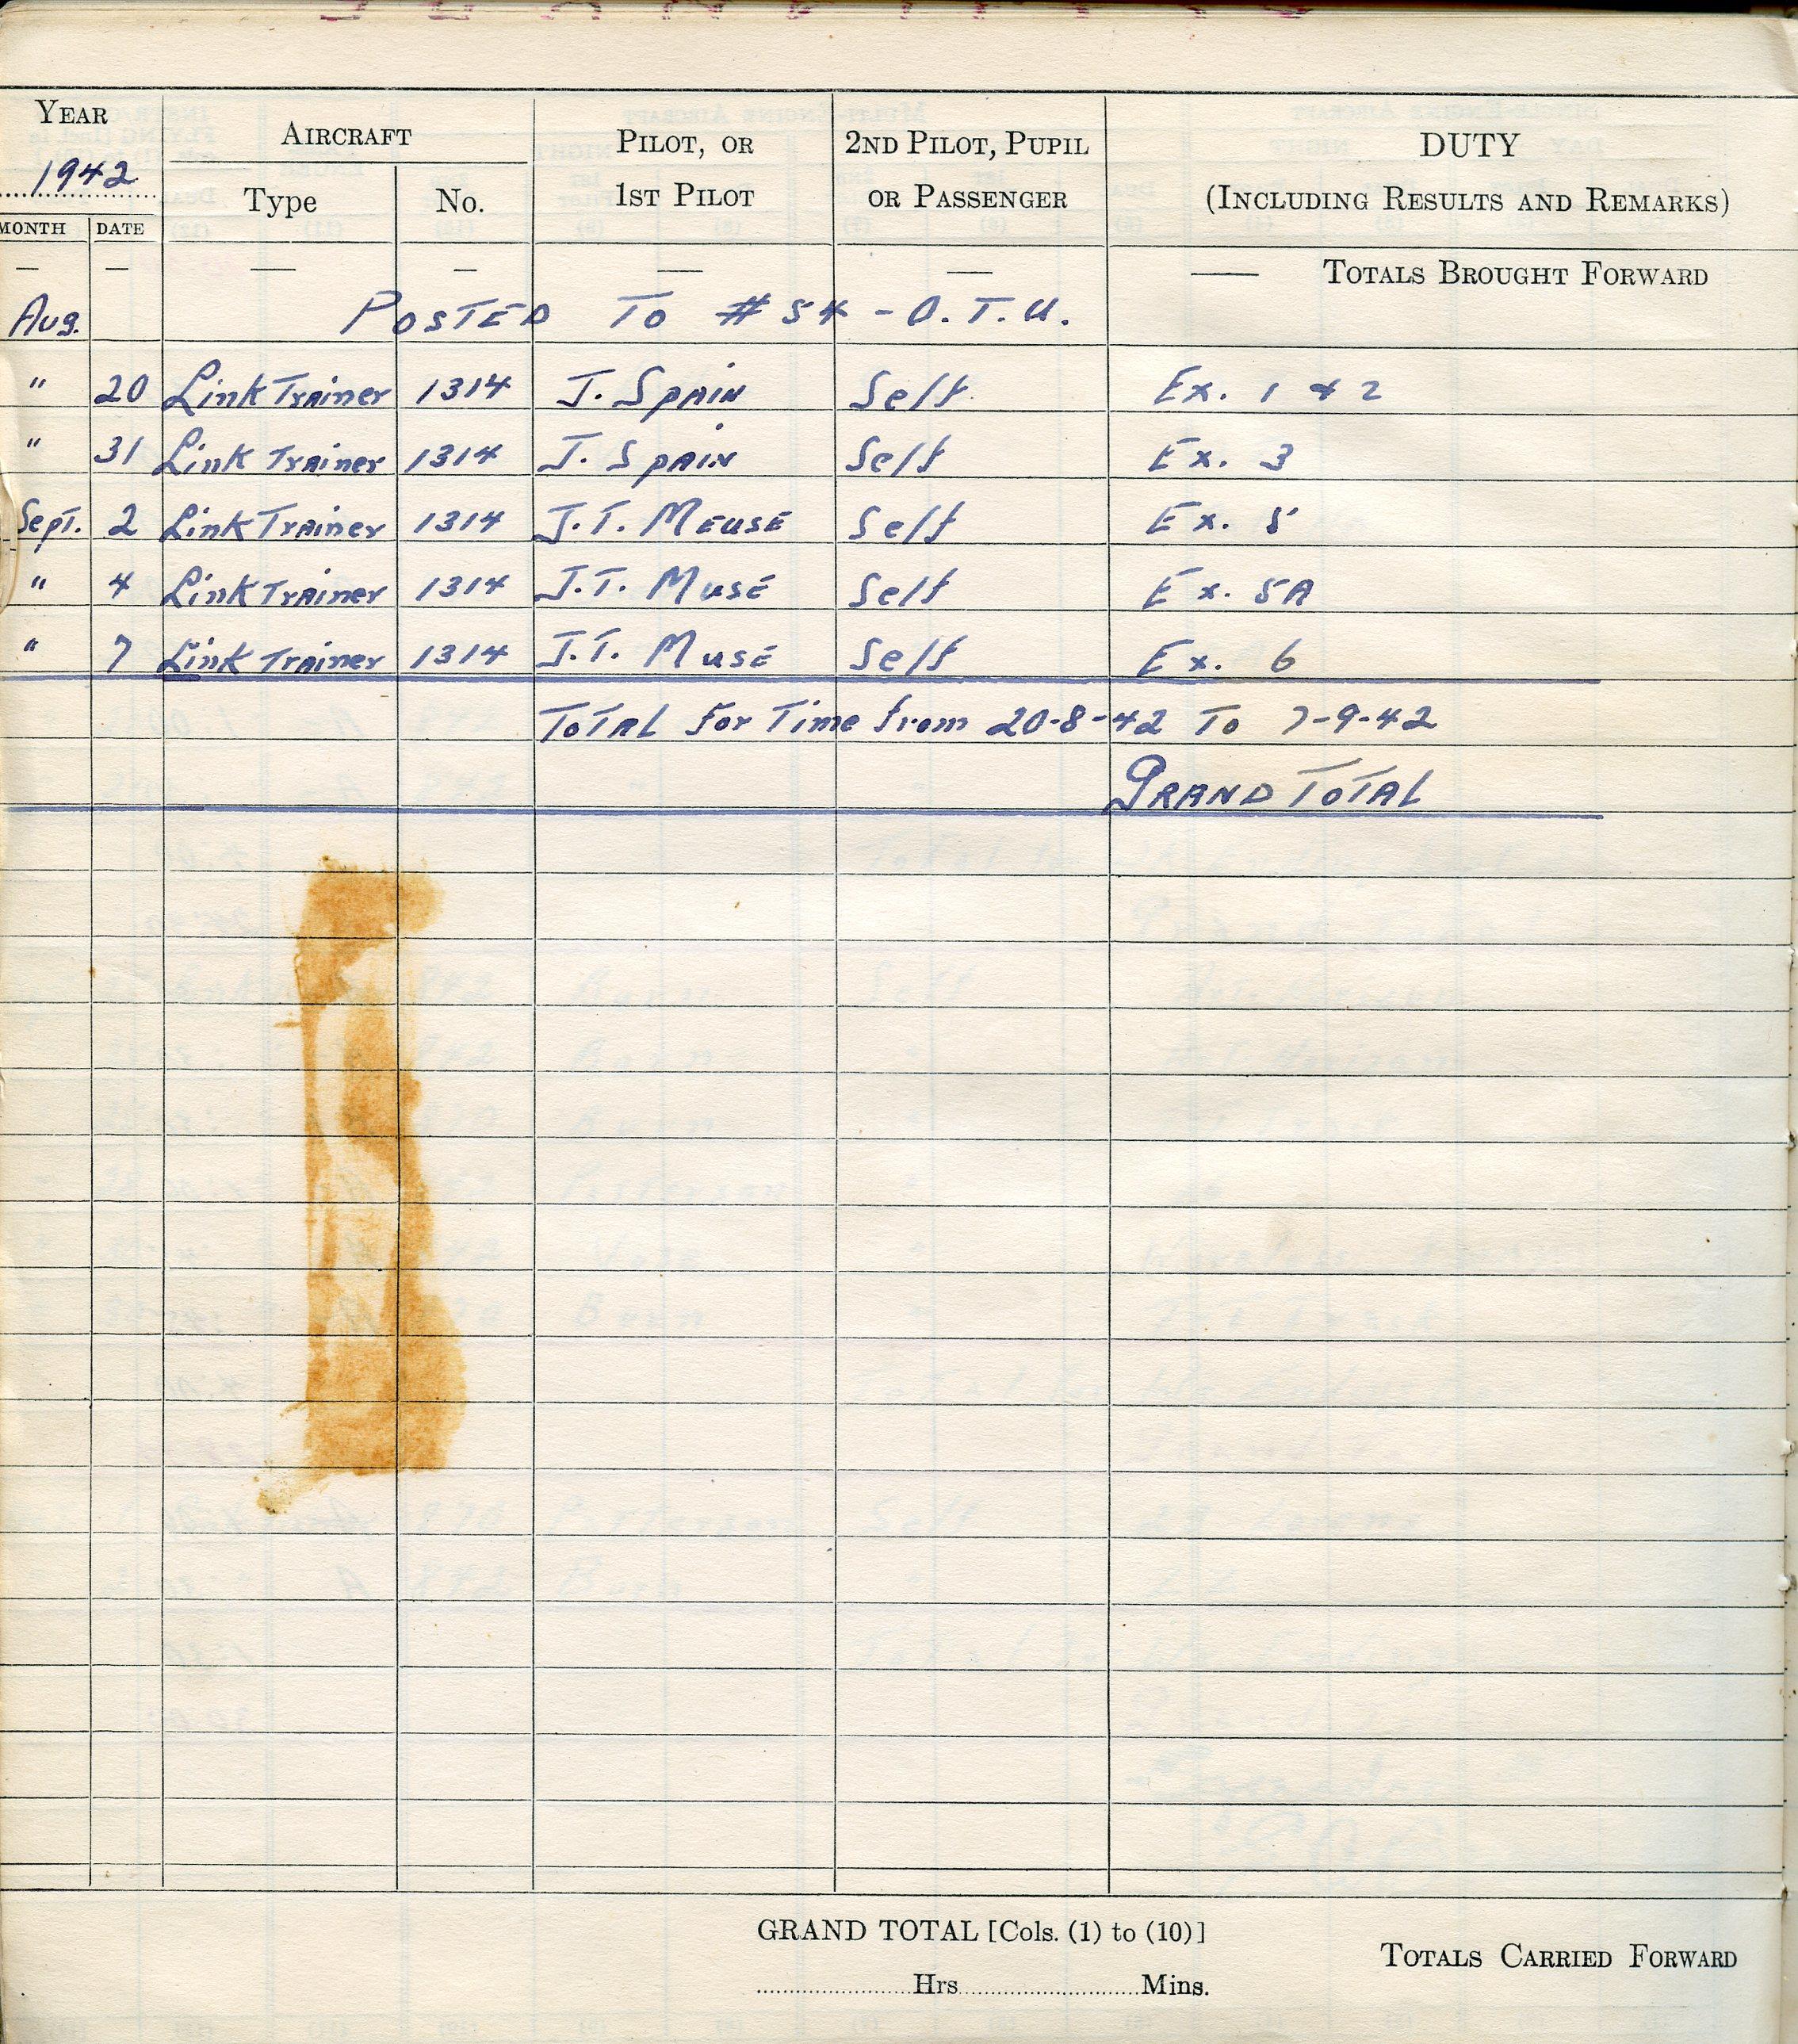 YEAR AIRCRAFT PILOT, OR 2ND PILOT, PUPIL DUTY
1942 Type No. 1ST PILOT OR PASSENGER (INCLUDING RESULTS AND REMARKS)
MONTH DATE
— — — — — — — TOTALS BROUGHT FORWARD
Aug. POSTED TO # 54 - O.T.U.
" 20 Link Trainer 1314 J. SPAIN Self Ex. 1 & 2
" 31 Link Trainer 1314 J. SPAIN Self Ex. 3
Sept. 2 Link Trainer 1314 J.T. MEUSE Self Ex. 5
" 4 Link Trainer 1314 J.T. MUSE Self Ex. 5A
" 7 Link Trainer 1314 J.T. MUSE Self Ex. 6
TOTAL For Time from 20-8-42 To 7-9-42
GRAND TOTAL
GRAND TOTAL [Cols. (1) to (10)]
TOTALS CARRIED FORWARD
....................Hrs.........................Mins.